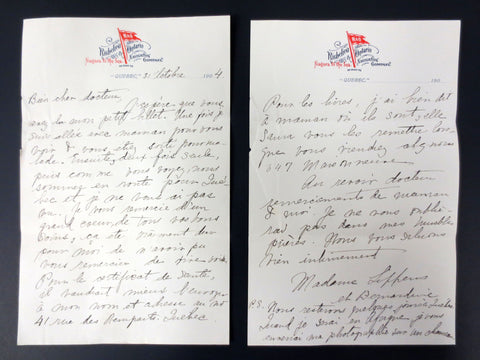 Richelieu
R&O
Ontario
Navigation
Company
Niagara to the Sea
"QUEBEC" 31 octobre 1904
Bien cher docteur,
J'espère que vous
avez lu mon petit billet. Une fois je
suis allée avec maman pour vous
voir & vous étiez sorti pour ma-
lade. Ensuite, deux fois seule,
puis comme vous voyez, nous
sommes en route pour Qué-
bec et je ne vous ai pas
vu. Je vous remercie d'un
grand coeur de tous vos bons
soins, ça été vraiment dur
pour moi de n'avoir pu
vous remercier de vive voix.
Pour le certificat de santé,
il vaudrait mieux l'envoyer
à mon nom et adresse au No
41 rue des Remparts Québec
Richelieu
R&O
Ontario
Navigation
Company
Niagara to the Sea
"QUEBEC" 190
Pour les livres, j'ai bien dit
à maman où ils sont; elle
saura vous les remettre lors-
que vous viendrez
647 Maisonneuve
Au revoir docteur
remerciements de maman
& moi. Je ne vous oublie-
rai pas dans mes humbles
prières. Nous vous saluons
bien intimement
Madame
et Bernardine
P.S. Nous resterons quelques jours à Québec
Quand je serai en je vous
enverrai ma photographie sur un